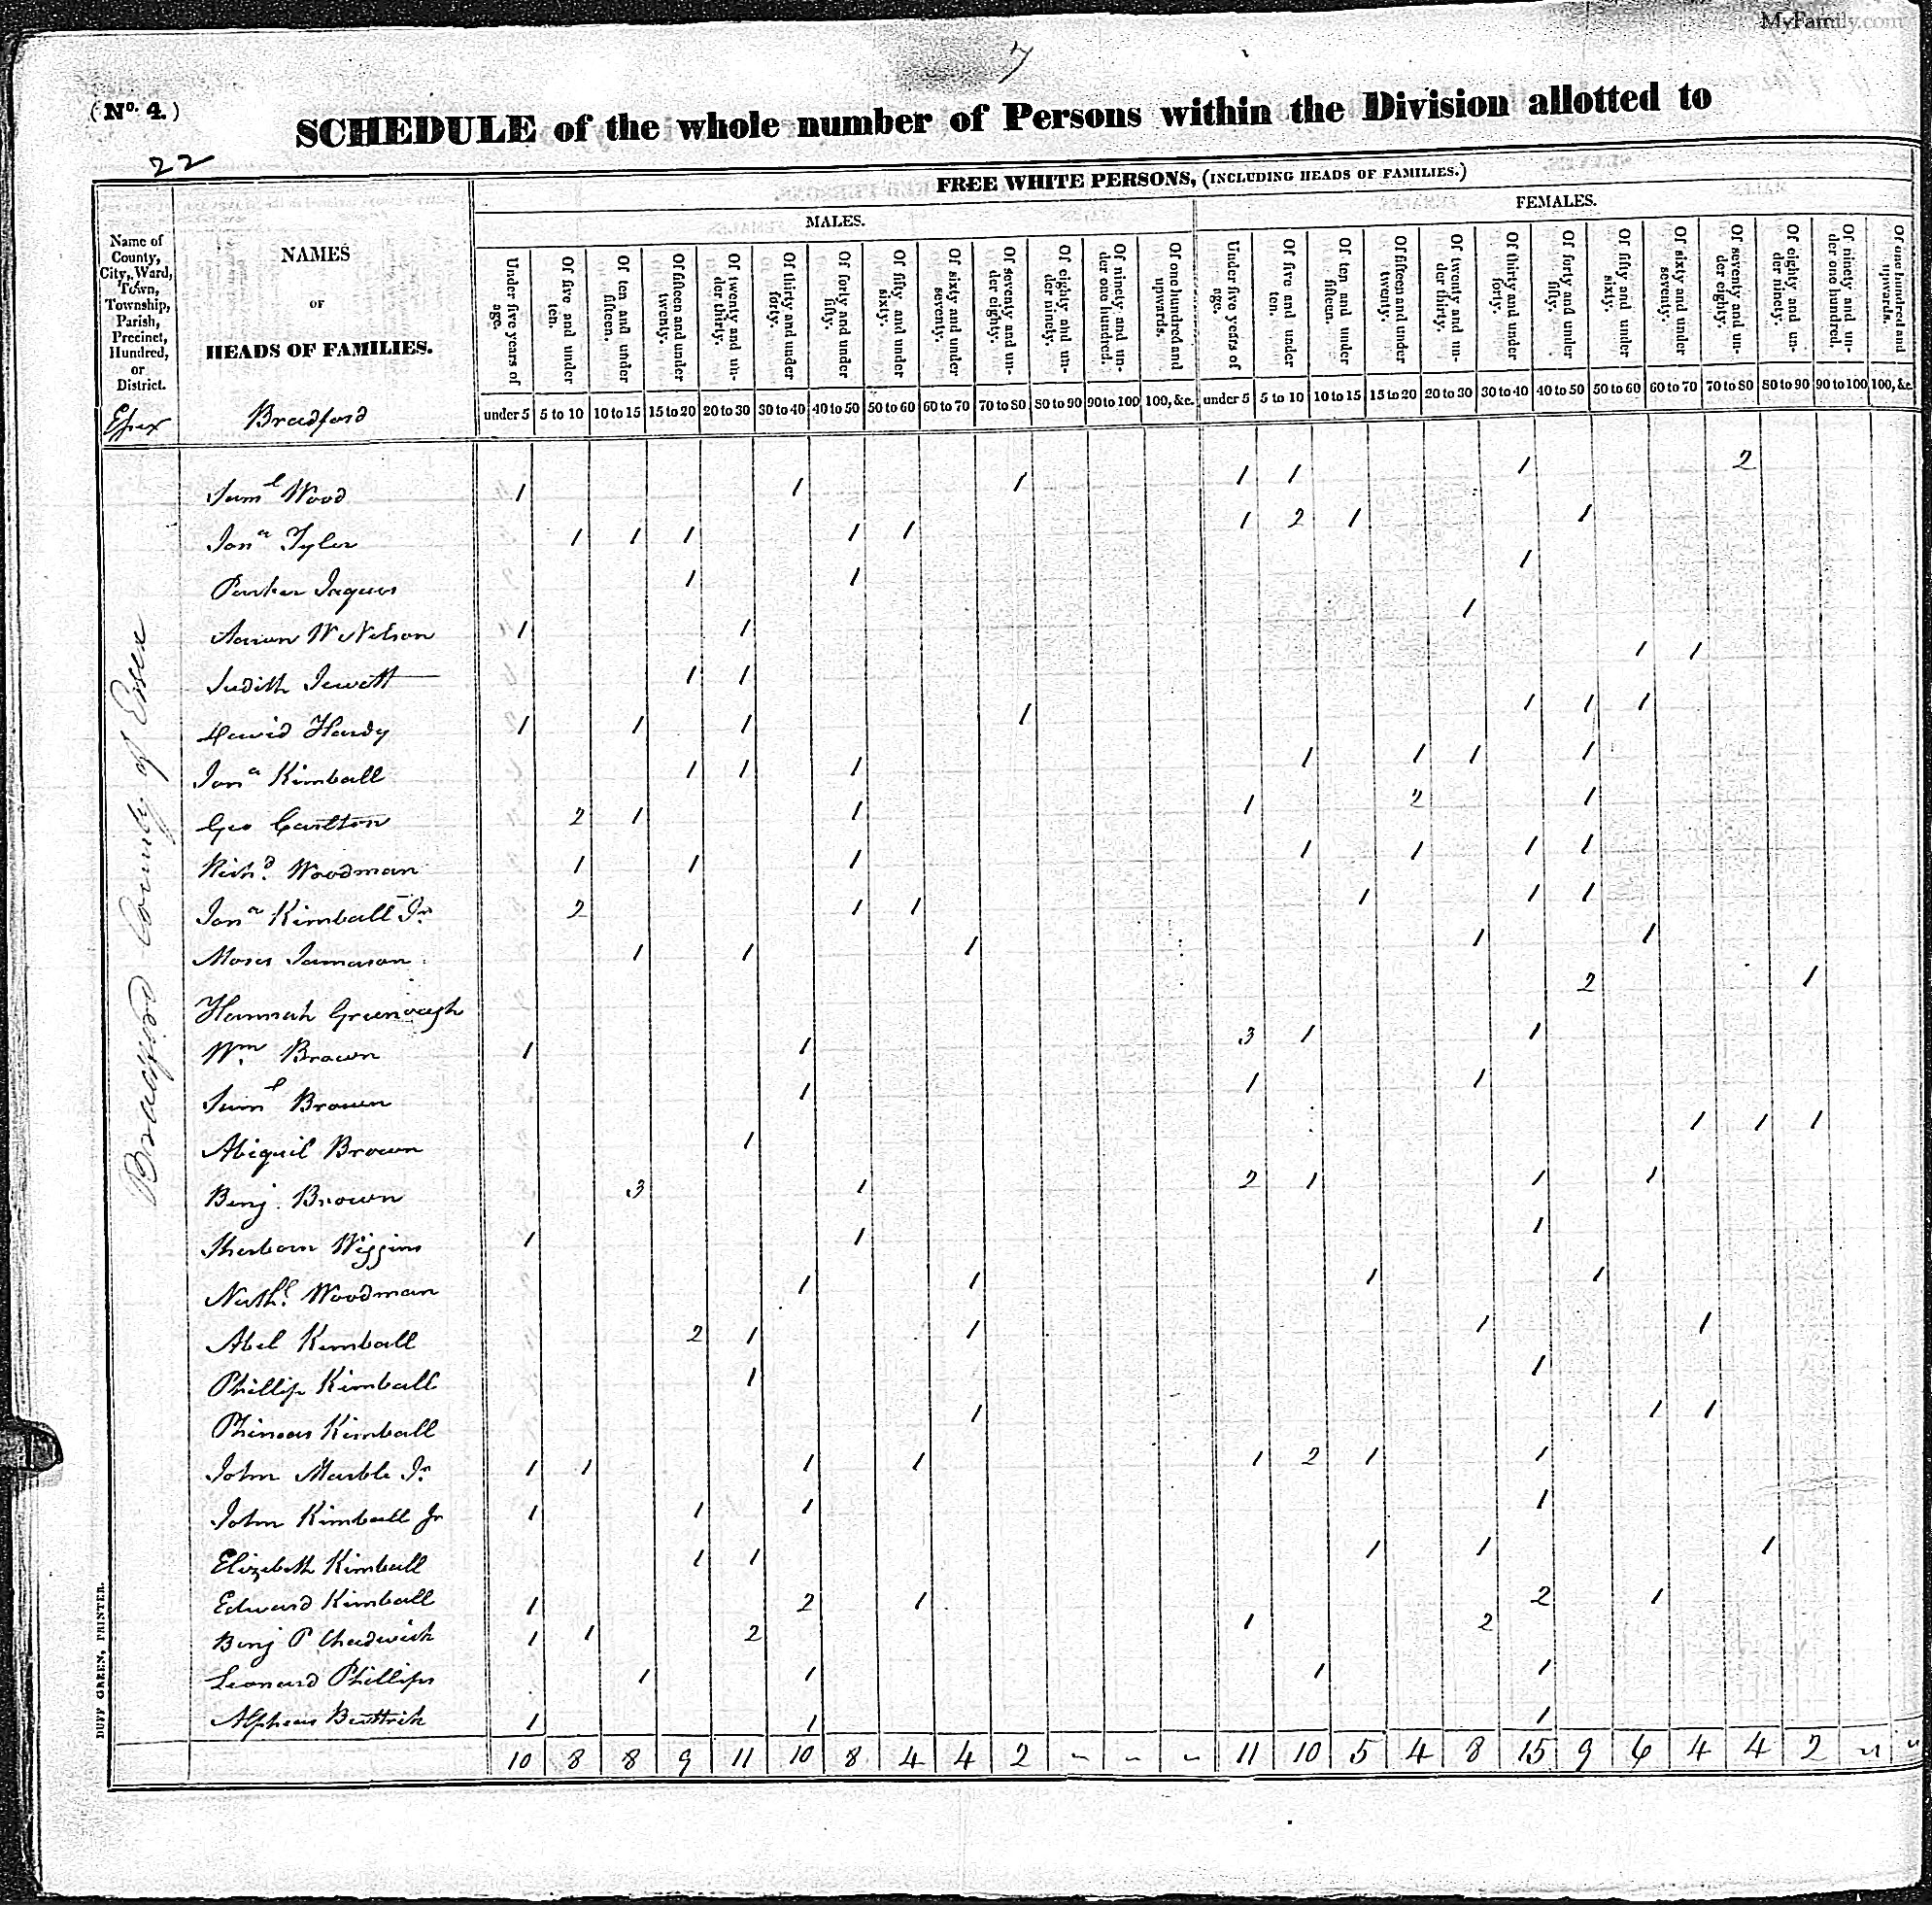 MyFamily.com
7
(No. 4.)
SCHEDULE of the whole number of Persons within the Division allotted to
22
FREE WHITE PERSONS, (INCLUDING HEADS OF FAMILIES.)
MALES. FEMALES.
Name of County, City, Ward, Town, Township, Parish, Precinct, Hundred, or District.
NAMES OF HEADS OF FAMILIES.
Under five years of age. Of five and under ten. Of ten and under fifteen. Of fifteen and under twenty. Of twenty and under thirty. Of thirty and under forty. Of forty and under fifty. Of fifty and under sixty. Of sixty and under seventy. Of seventy and under eighty. Of eighty and under ninety. Of ninety and under one hundred. Of one hundred and upwards. Under five years of age. Of five and under ten. Of ten and under fifteen. Of fifteen and under twenty. Of twenty and under thirty. Of thirty and under forty. Of forty and under fifty. Of fifty and under sixty. Of sixty and under seventy. Of seventy and under eighty. Of eighty and under ninety. Of ninety and under one hundred. Of one hundred and upwards.
under 5 5 to 10 10 to 15 15 to 20 20 to 30 30 to 40 40 to 50 50 to 60 60 to 70 70 to 80 80 to 90 90 to 100 100, &c. under 5 5 to 10 10 to 15 15 to 20 20 to 30 30 to 40 40 to 50 50 to 60 60 to 70 70 to 80 80 to 90 90 to 100 100, &c.
Essex Bradford
Bradford County of Essex
Saml Wood 1 1 1 1 1 1 2
Jona Tyler 1 1 1 1 1 1 2 1 1
Parker Jaques 1 1 1
Aaron W Nelson 1 1 1
Judith Jewett 1 1 1 1
David Hardy 1 1 1 1 1 1 1
Jona Kimball 1 1 1 1 1 1 1
Geo Carlton 2 1 1 1 2 1
Richd. Woodman 1 1 1 1 1 1 1
Jona Kimball Jr 2 1 1 1 1 1
Moses Jamason 1 1 1 1 1
Hannah Greenough 2 1
Wm Brown 1 1 3 1 1
Saml Brown 1 1 1
Abigail Brown 1 1 1 1
Benj. Brown 3 1 2 1 1 1
Sherborn Wiggins 1 1 1
Nathl. Woodman 1 1 1 1
Abel Kimball 2 1 1 1 1
Phillip Kimball 1 1
Phineas Kimball 1 1 1
John Marble Jr 1 1 1 1 1 2 1 1
John Kimball Jr 1 1 1 1
Elizabeth Kimball 1 1 1 1 1
Edward Kimball 1 2 1 2 1
Benj P. Chadwick 1 1 2 1 2
Leonard Phillips 1 1 1 1
Alpheus Buttrick 1 1 1
10 8 8 9 11 10 8 4 4 2 - - - 11 10 5 4 8 15 9 6 4 4 2 " "
DUFF GREEN, PRINTER.